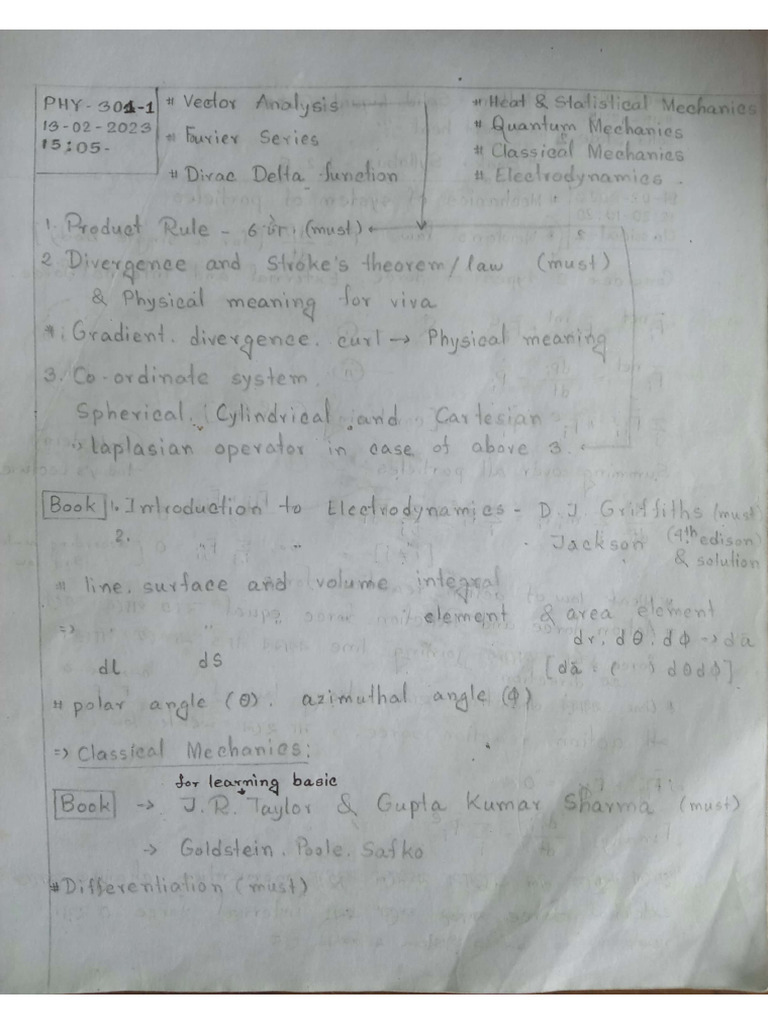 PHY-301-1
13-02-2023
15:05-
# Vector Analysis
# Fourier Series
# Dirac Delta function
# Heat & Statistical Mechanics
# Quantum Mechanics
# Classical Mechanics
# Electrodynamics.
1. Product Rule - 6 (must)
2 Divergence and Stroke's theorem/law (must)
& Physical meaning for viva
Gradient, divergence, curl → Physical meaning
3. Co-ordinate system.
Spherical, Cylindrical and Cartesian
laplasian operator in case of above 3.
Book 1. Introduction to Electrodynamics - D.J. Griffiths (must)
(4th edison)
2. " " - Jackson & solution
# line, surface and volume integral
=> " " element & area element
dl dS dr, dθ, dϕ → da
# polar angle (θ), azimuthal angle (ϕ)
=> Classical Mechanics:
for learning basic
Book → J.R. Taylor & Gupta Kumar Sharma (must)
→ Goldstein, Poole, Safko
# Differentiation (must)